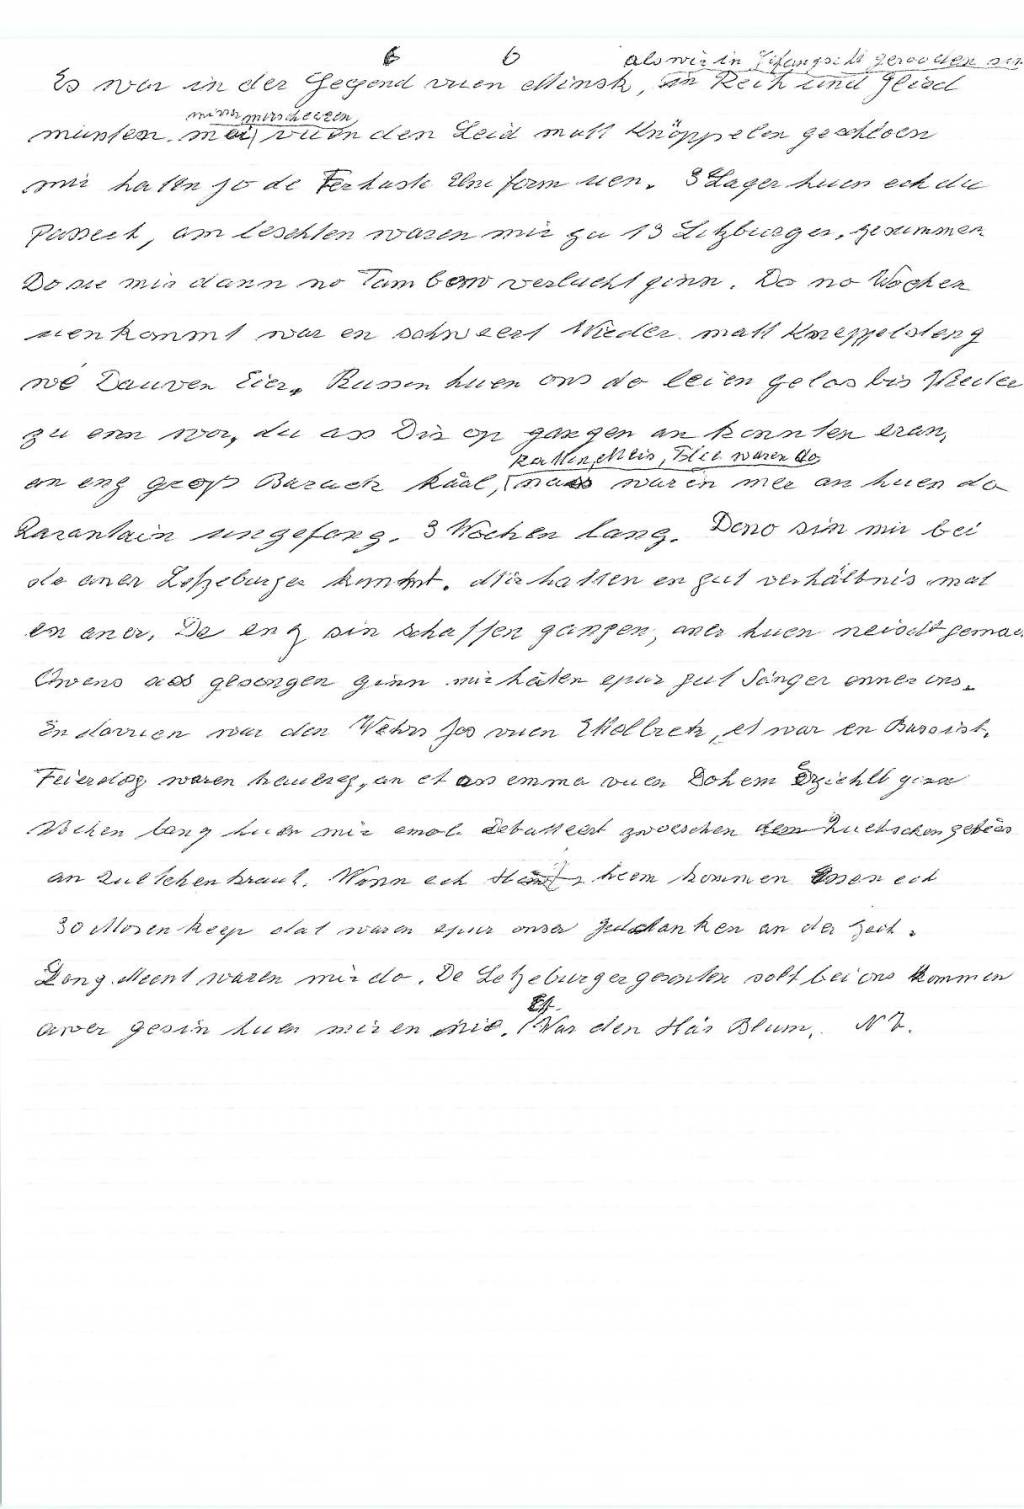 6 6 als wir in Gefangscht gerooden sin
Es war in der Gegend vuen Minsk, in Reih und Glied
mir marscheiren,
musten vuen den Leid matt Knöppelen geschloen
mir haten jo de Ferhaste Uniform uen. 3 Lager huen ech du
Passeit, am leschten waren mir zu 13 Letzburger, zesummen
Do se mir dann no Tambow verlucht ginn. Do no Wochen
uenkommt war en schweert Wieder matt Kneppelsteng
wé Dauven Eier. Russen huen ons do leien gelos bis Wieder
zu enn wor, du ass Dir op gangen an konnten eran,
Ratten, Meis, Flée waren do
an eng grojs Barack kaal, nass waren mer an huen do
Qarantain ungefang. 3 Wochen lang. Dono sin mir bei
de aner Letzeburger kommt. Mir hatten en gut verhältnis mat
en aner. De eng sin schaffen gangen, aner huen neischt gemac
Owens ass gesongen ginn mir häten epur gut Sänger enner ons.
En dovuen war den Wehrs Jos vuen Ellelbreck, et war en Barsist.
Feierdog waren traureg, an et ass emma vuen Dohem Erzielt ginn
Wochen lang huen mir emol debatteert zwoeschen den Quetschengebees
an Quetchenkraut. Wonn ech heem kommen Essen ech
30 Moxenkeep dat waren epur onser gedanken an der Zeit.
Long Meent waren mir do. De Letzeburger gesonten sollt bei ons kommen
awer gesin huen mir en nie. Et War den Här Blum. N Z.